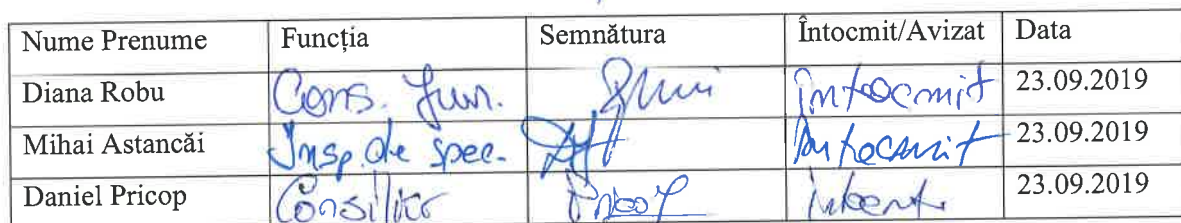 Nume Prenume Funcția Semnătura Întocmit/Avizat Data
Diana Robu Cons. Jur. Întocmit 23.09.2019
Mihai Astancăi Insp. de spec. Întocmit 23.09.2019
Daniel Pricop Consilier Întocmit 23.09.2019